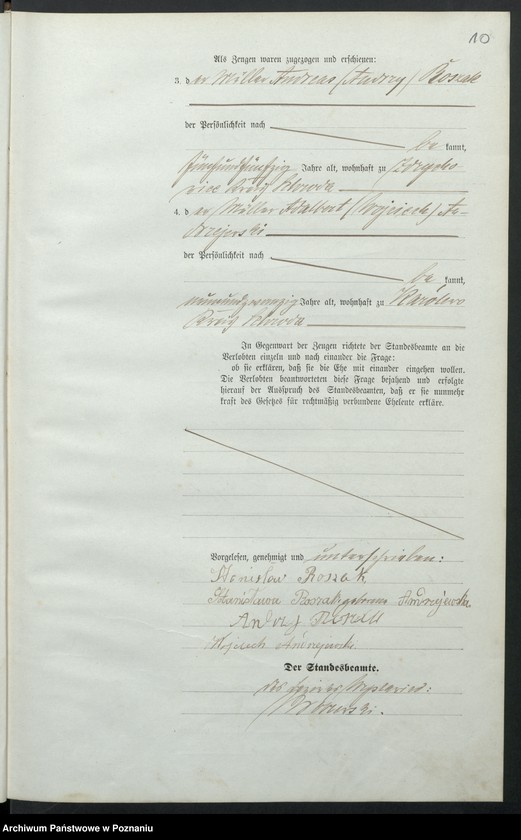 10
Als Zeugen waren zugezogen und erschienen:
3. der Müller Andreas (Andrzy) Roszak
der Persönlichkeit nach
be kannt,
fünfundfünfzig Jahre alt, wohnhaft zu
Kreis Schroda
4. der Müller Adalbert (Wojciech) An-
drzejewski
der Persönlichkeit nach
be kannt,
neunundzwanzig Jahre alt, wohnhaft zu Karolewo
Kreis Schroda
In Gegenwart der Zeugen richtete der Standesbeamte an die
Verlobten einzeln und nach einander die Frage:
ob sie erklären, daß sie die Ehe mit einander eingehen wollen.
Die Verlobten beantworteten diese Frage bejahend und erfolgte
hierauf der Ausspruch des Standesbeamten, daß er sie nunmehr
kraft des Gesetzes für rechtmäßig verbundene Eheleute erkläre.
Vorgelesen, genehmigt und unterschrieben:
Stanisław Roszak
Stanisława Roszak geborene Andrzejewska
Andrzej Roszak
Wojciech Andrzejewski
Der Standesbeamte.
Archiwum Państwowe w Poznaniu